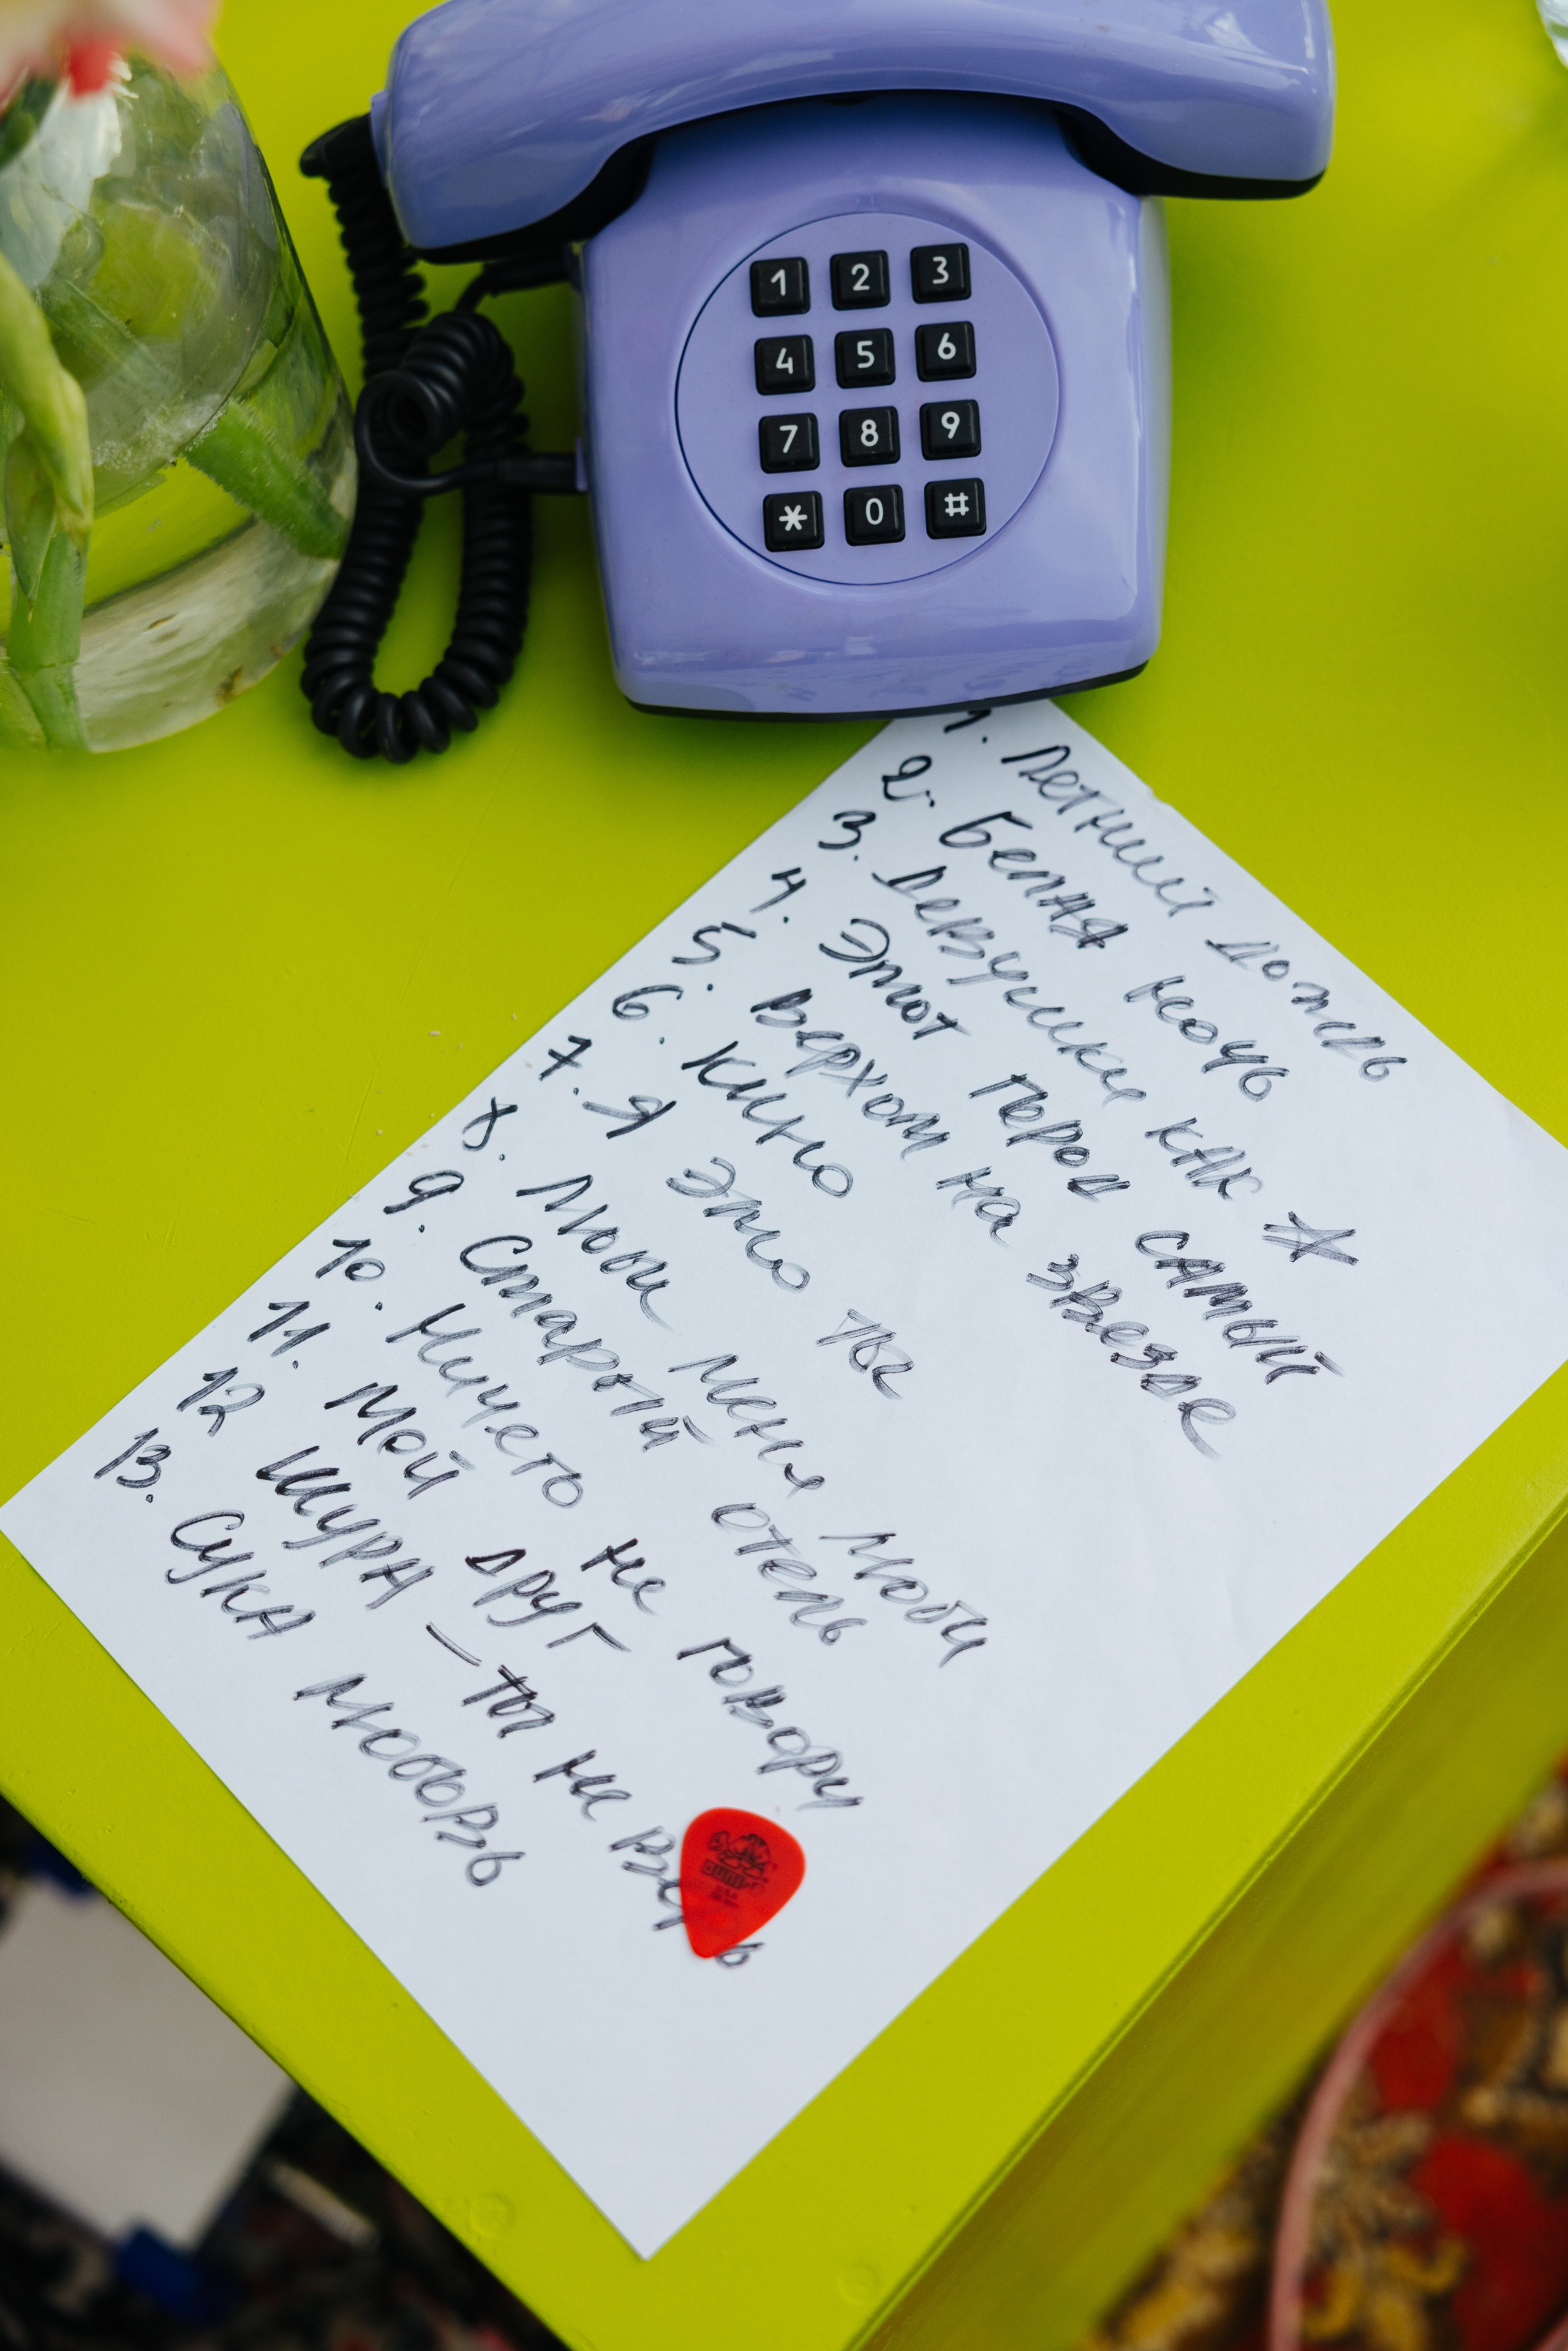 1 2 3
4 5 6
7 8 9
* 0 #
1. Летний дождь
2. Белая ночь
3. Девушки как ☆
4. Этот город самый
5. Верхом на звезде
6. Кино
7. Я это ты
8. Люби меня люби
9. Старый отель
10. Ничего не говори
11. Мой друг
12 Шура – ты не
13. Сука любовь